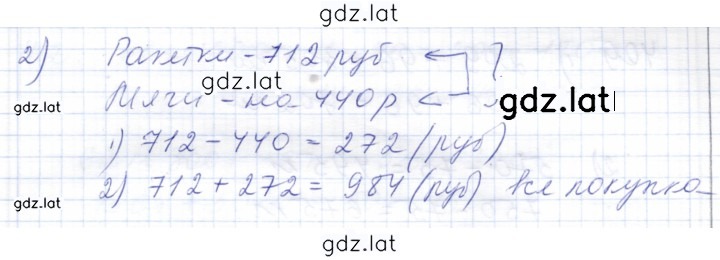 gdz.lat
2) Ракетки - 712 руб ?
gdz.lat
gdz.lat Мячи - на 440 р
gdz.lat
1) 712 - 440 = 272 (руб)
2) 712 + 272 = 984 (руб) вся покупка
gdz.lat
gdz.lat